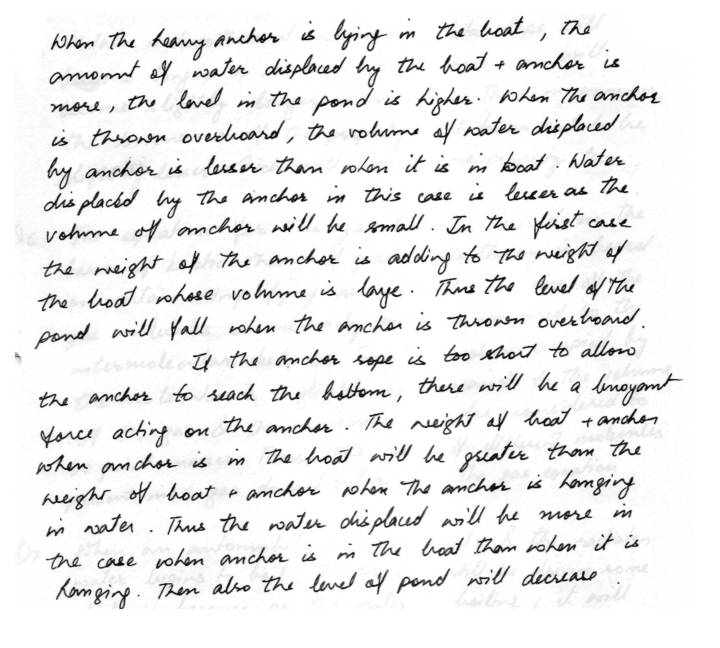 When the heavy anchor is lying in the boat, the
amount of water displaced by the boat + anchor is
more, the level in the pond is higher. When the anchor
is thrown overboard, the volume of water displaced
by anchor is lesser than when it is in boat. Water
displaced by the anchor in this case is lesser as the
volume of anchor will be small. In the first case
the weight of the anchor is adding to the weight of
the boat whose volume is large. Thus the level of the
pond will fall when the anchor is thrown overboard.
If the anchor rope is too short to allow
the anchor to reach the bottom, there will be a buoyant
force acting on the anchor. The weight of boat + anchor
when anchor is in the boat will be greater than the
weight of boat + anchor when the anchor is hanging
in water. Thus the water displaced will be more in
the case when anchor is in the boat than when it is
hanging. Then also the level of pond will decrease.